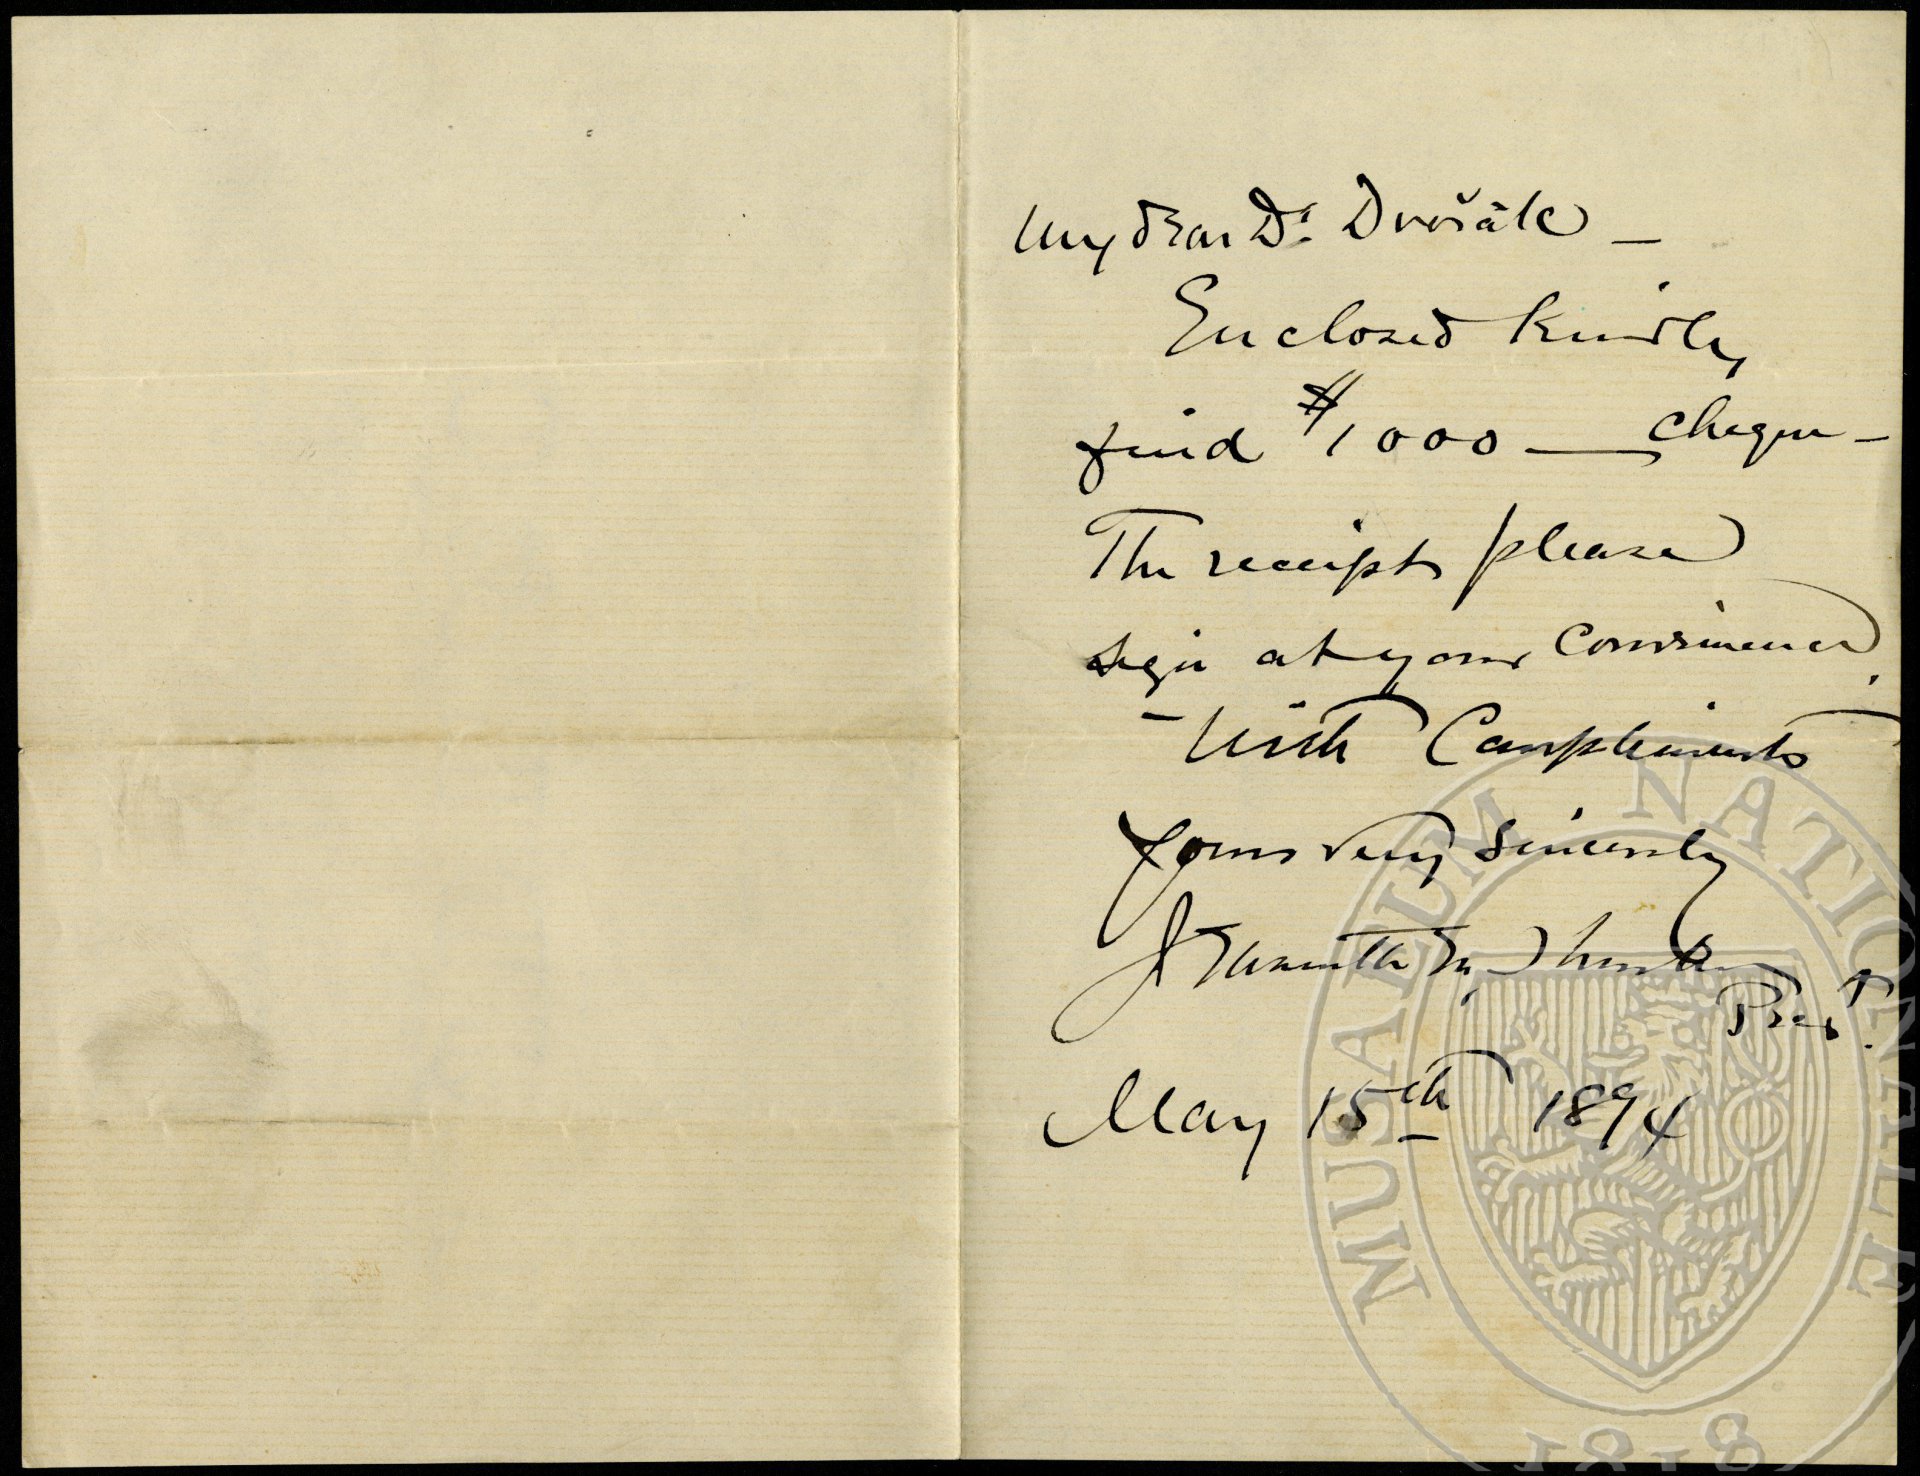 My dear Dr. Dvořák —
Enclosed kindly
find $1000 — cheque —
The receipt please
sign at your convenience.
— With Compliments
Yours very sincerely
Jeannette M. Thurber
Prest.
May 15th 1894
MUSAEUM NATIONALE
1818